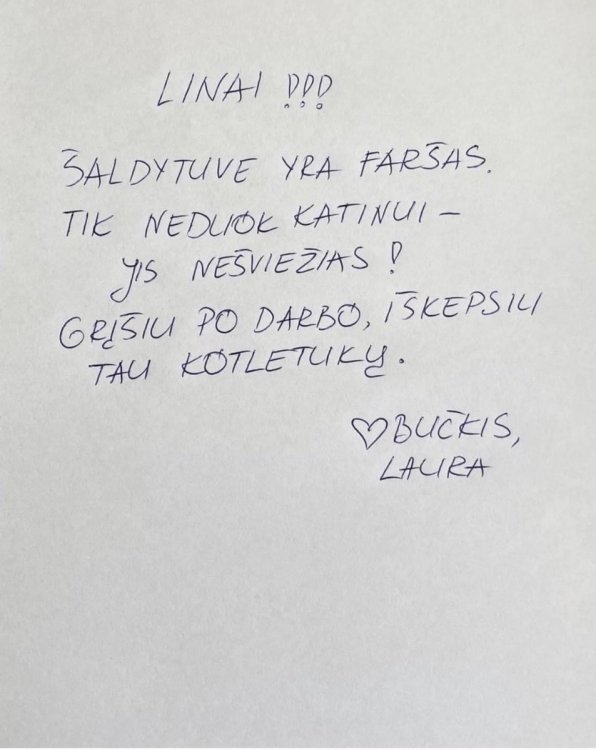 LINAI !!!
ŠALDYTUVE YRA FARŠAS.
TIK NEDUOK KATINUI –
JIS NEŠVIEŽIAS!
GRĮŠIU PO DARBO, IŠKEPSIU
TAU KOTLETUKŲ.
♡BUČKIS,
LAURA